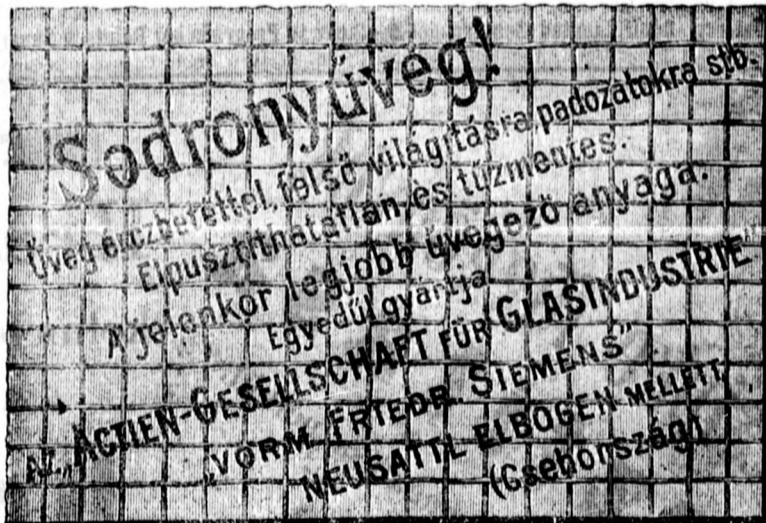 Sodronyüveg!
Üveg érczbetéttel, felső világításra, padozatokra stb.
Elpusztíthatatlan és tűzmentes.
A jelenkor legjobb üvegező anyaga.
Egyedül gyártja
Az „ACTIEN-GESELLSCHAFT FÜR GLASINDUSTRIE"
„VORM. FRIEDR. SIEMENS"
NEUSATTL ELBOGEN MELLETT
(Csehország)